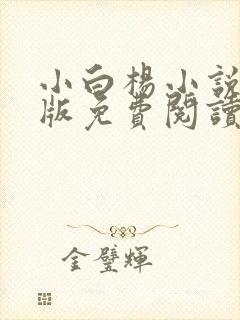 小白楊小說
版免費閱讀
金璧輝